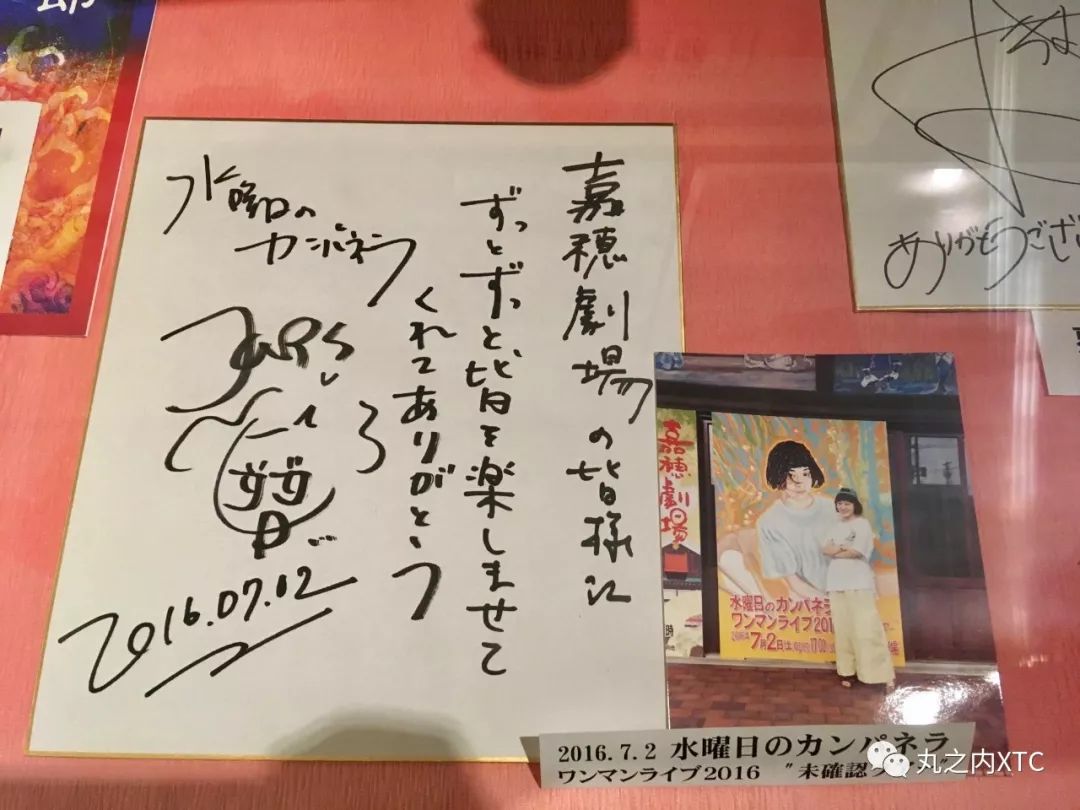 嘉穂劇場の皆様に
ずっとずっと皆を楽しませて
くれてありがとう
水曜日の
カンパネラ
2016.07.02
ありがとうござい
嘉穂劇場
水曜日のカンパネラ
ワンマンライブ201
7月2日
2016.7.2 水曜日のカンパネラ
ワンマンライブ2016 〝未確認
丸之内XTC